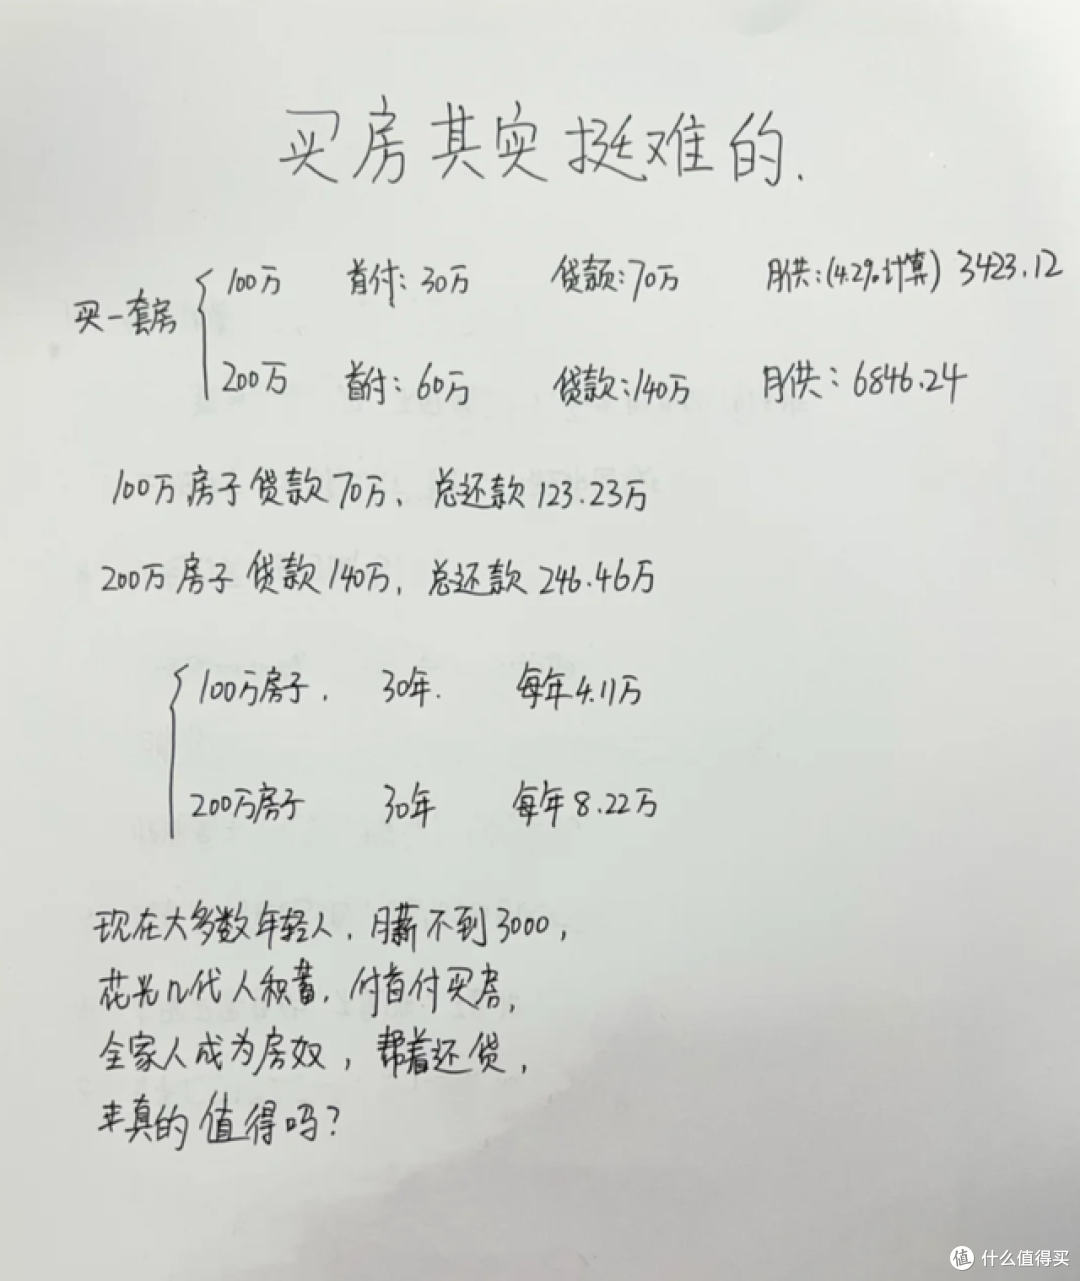 买房其实挺难的.
买一套房
100万 首付:30万 贷款:70万 月供:(4.2%计算) 3423.12
200万 首付:60万 贷款:140万 月供:6846.24
100万房子贷款70万, 总还款123.23万
200万房子贷款140万, 总还款246.46万
100万房子, 30年. 每年4.11万
200万房子 30年 每年8.22万
现在大多数年轻人,月薪不到3000,
花光几代人积蓄,付首付买房,
全家人成为房奴,帮着还贷,
真的值得吗?
值 什么值得买